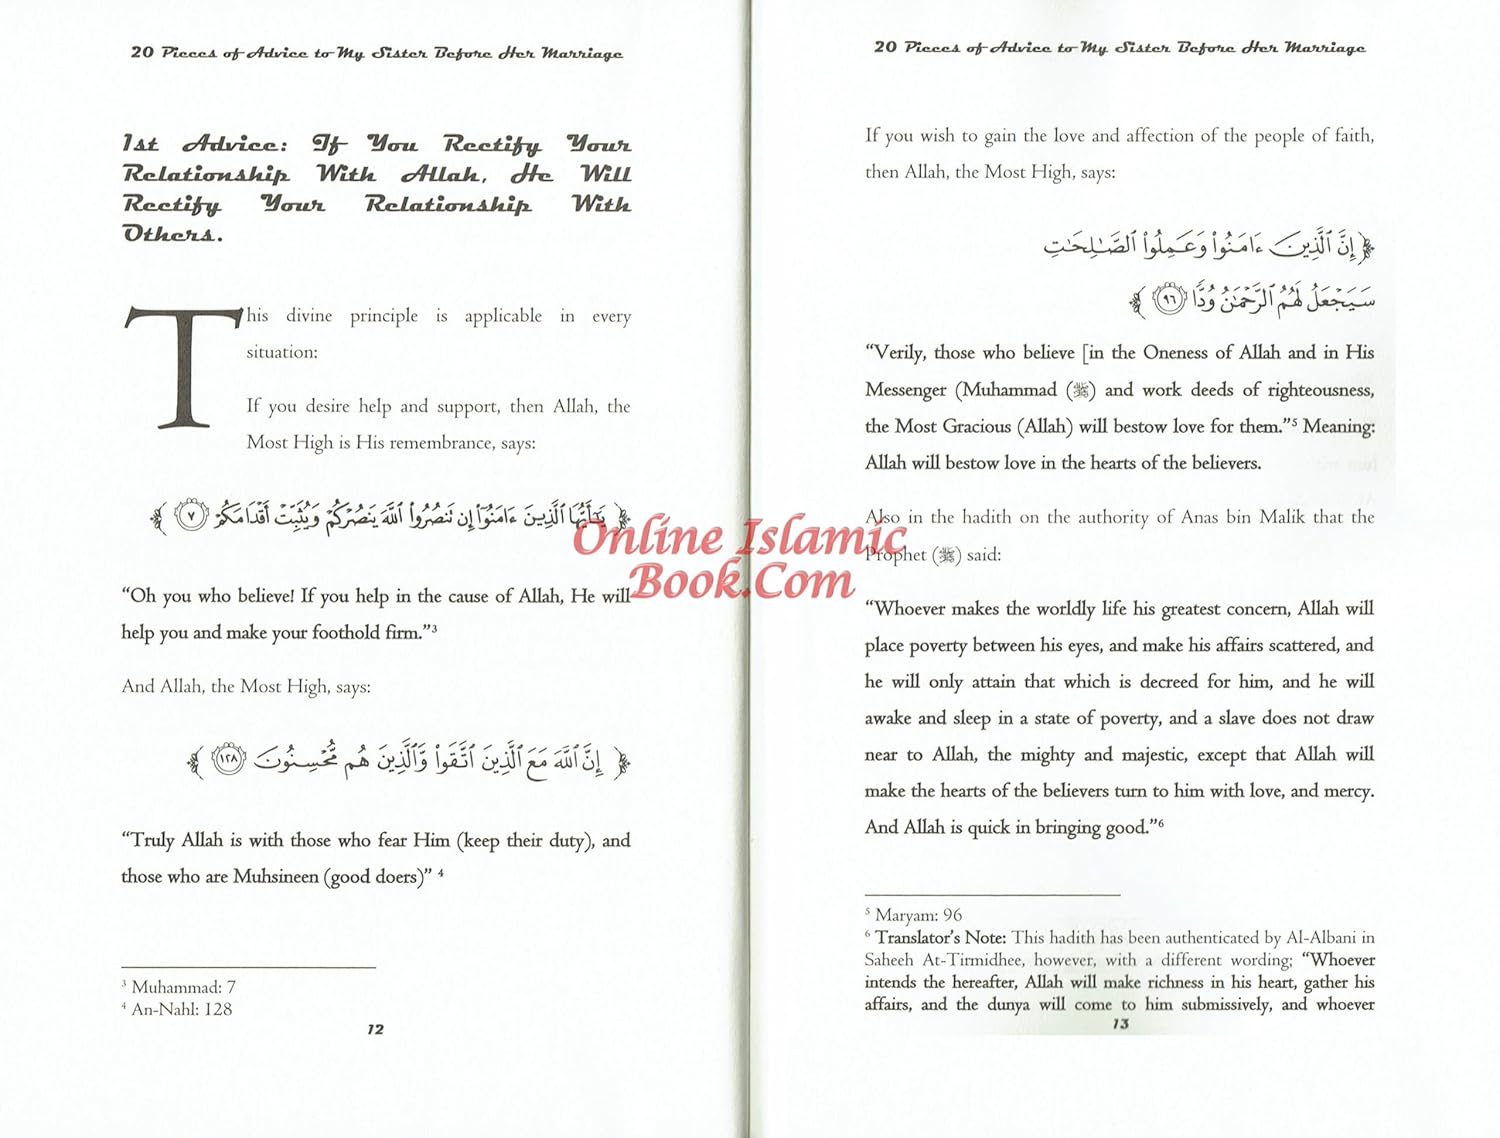 20 Pieces of Advice to My Sister Before Her Marriage
1st Advice: If You Rectify Your
Relationship With Allah, He Will
Rectify Your Relationship With
Others.
This divine principle is applicable in every
situation:
If you desire help and support, then Allah, the
Most High is His remembrance, says:
﴿ يَـٰٓأَيُّهَا ٱلَّذِينَ ءَامَنُوٓا۟ إِن تَنصُرُوا۟ ٱللَّهَ يَنصُرْكُمْ وَيُثَبِّتْ أَقْدَامَكُمْ ٧ ﴾
“Oh you who believe! If you help in the cause of Allah, He will
help you and make your foothold firm.”³
And Allah, the Most High, says:
﴿ إِنَّ ٱللَّهَ مَعَ ٱلَّذِينَ ٱتَّقَوا۟ وَّٱلَّذِينَ هُم مُّحْسِنُونَ ١٢٨ ﴾
“Truly Allah is with those who fear Him (keep their duty), and
those who are Muhsineen (good doers)” ⁴
³ Muhammad: 7
⁴ An-Nahl: 128
12
20 Pieces of Advice to My Sister Before Her Marriage
If you wish to gain the love and affection of the people of faith,
then Allah, the Most High, says:
﴿ إِنَّ ٱلَّذِينَ ءَامَنُوا۟ وَعَمِلُوا۟ ٱلصَّـٰلِحَـٰتِ
سَيَجْعَلُ لَهُمُ ٱلرَّحْمَـٰنُ وُدًّا ٩٦ ﴾
“Verily, those who believe [in the Oneness of Allah and in His
Messenger (Muhammad (ﷺ) and work deeds of righteousness,
the Most Gracious (Allah) will bestow love for them.”⁵ Meaning:
Allah will bestow love in the hearts of the believers.
Also in the hadith on the authority of Anas bin Malik that the
Prophet (ﷺ) said:
“Whoever makes the worldly life his greatest concern, Allah will
place poverty between his eyes, and make his affairs scattered, and
he will only attain that which is decreed for him, and he will
awake and sleep in a state of poverty, and a slave does not draw
near to Allah, the mighty and majestic, except that Allah will
make the hearts of the believers turn to him with love, and mercy.
And Allah is quick in bringing good.”⁶
⁵ Maryam: 96
⁶ Translator’s Note: This hadith has been authenticated by Al-Albani in
Saheeh At-Tirmidhee, however, with a different wording; “Whoever
intends the hereafter, Allah will make richness in his heart, gather his
affairs, and the dunya will come to him submissively, and whoever
13
Online Islamic
Book.Com